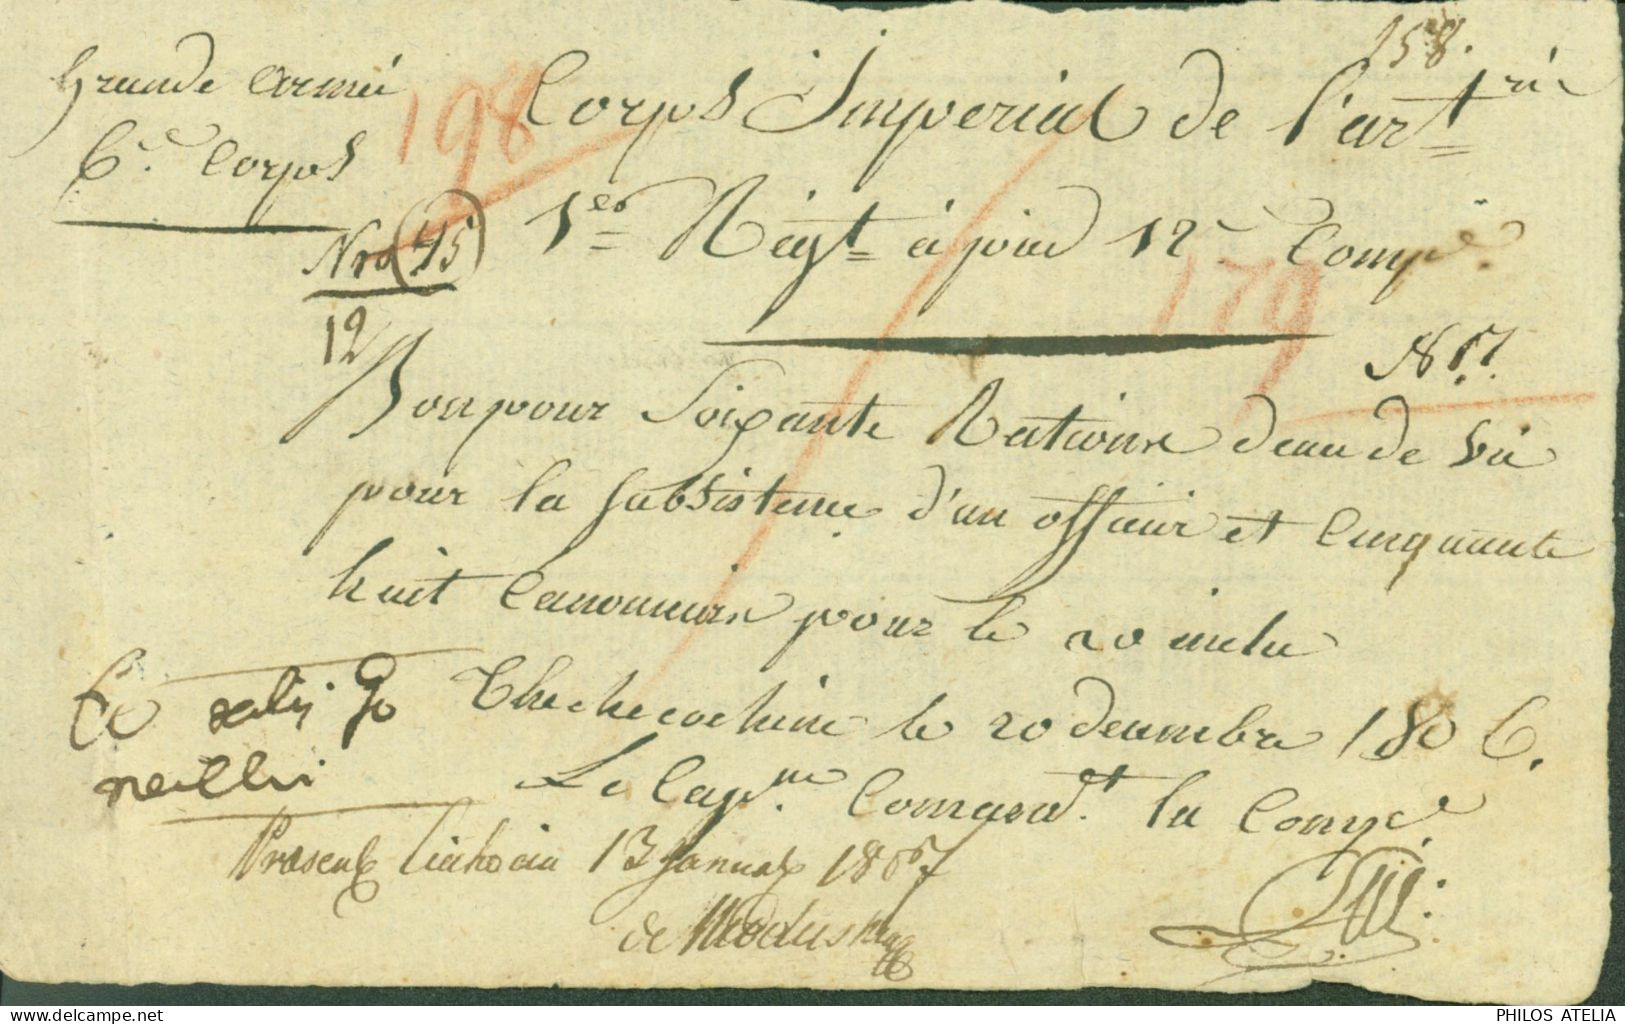 158.
Grande Armée
6.e Corps
198
Corps Imperial de l'art.rie
1er Regt. à pied 12e Compe.
Nro 45
12
179
No. 17.
Bon pour Soixante Rations d'eau de vie
pour la subsistence d'un officier et Cinquante
huit Canonniers pour le 20 inclu
le 20 decembre 1806.
Le Capne. Comandt. la Compe.
13 Januar 1807
de
PHILOS ATELIA